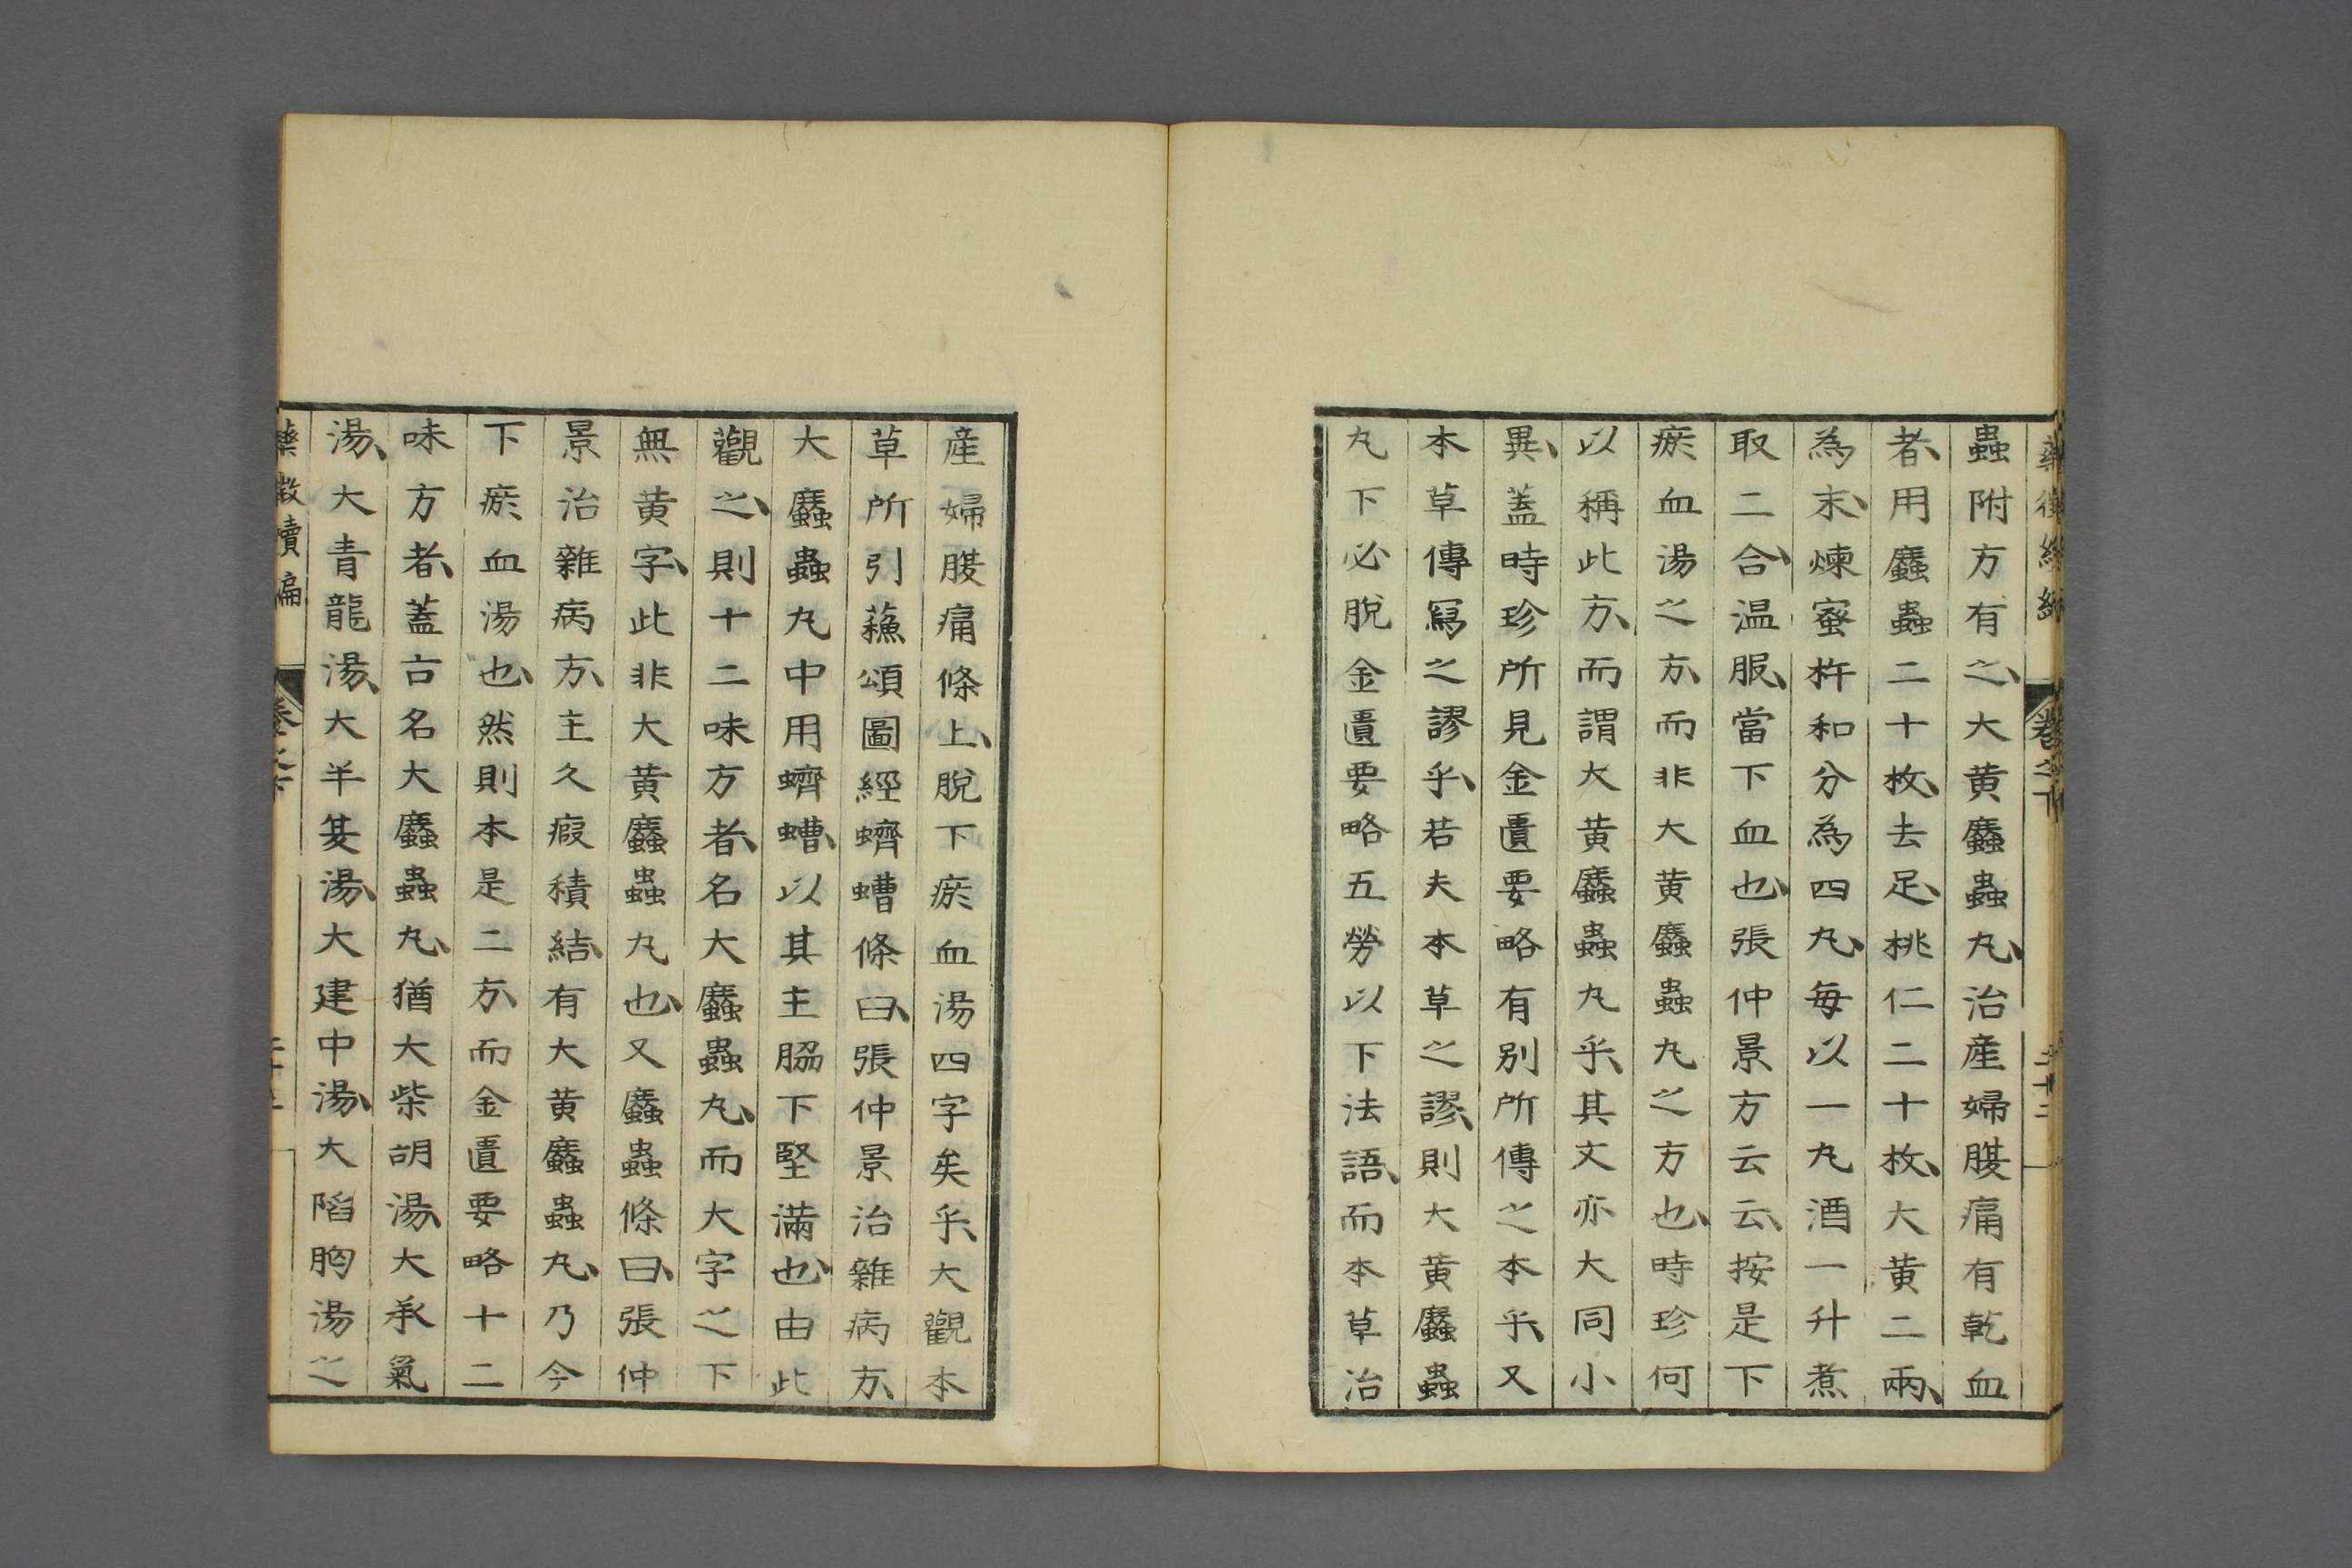 蟲附方有之、大黄䗪蟲丸、治産婦腹痛有乾血
者、用䗪蟲二十枚、去足、桃仁二十枚、大黄二兩、
為末、煉蜜杵和分為四丸、毎以一丸酒一升煮
取二合、温服、當下血也、張仲景方云云、按是下
瘀血湯之方、而非大黄䗪蟲丸之方也、時珍何
以稱此方、而謂大黄䗪蟲丸乎、其文亦大同小
異、蓋時珍所見金匱要略有別所傳之本乎、又
本草傳寫之謬乎、若夫本草之謬、則大黄䗪蟲
丸下必脫金匱要略五勞以下法語、而本草治
産婦腹痛條上、脫下瘀血湯四字矣乎、大觀本
草所引蘓頌圖經蠐螬條曰、張仲景治雜病方、
大䗪蟲丸中用蠐螬、以其主脇下堅滿也、由此
觀之、則十二味方者、名大䗪蟲丸、而大字之下
無黄字、此非大黄䗪蟲丸也、又䗪蟲條曰、張仲
景治雜病方、主久瘕積結、有大黄䗪蟲丸、乃今
下瘀血湯也、然則本是二方、而金匱要略十二
味方者、蓋古名大䗪蟲丸、猶大柴胡湯、大承氣
湯、大青龍湯、大半夏湯、大建中湯、大陷胸湯之
藥徴續編 卷之下